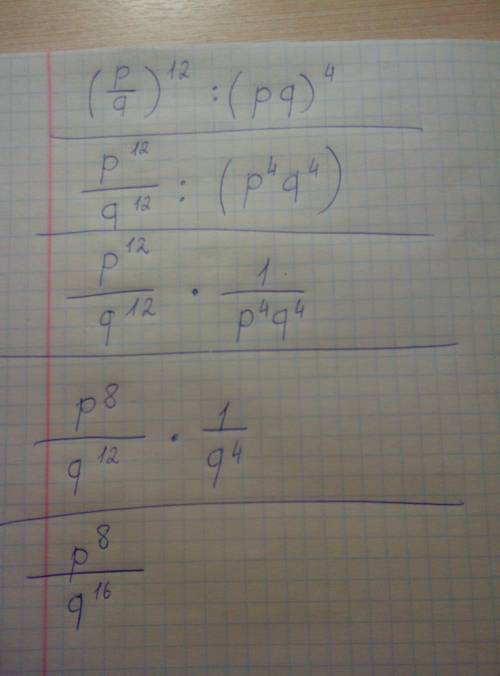 (p/q)^12 : (pq)^4
p^12/q^12 : (p^4q^4)
p^12/q^12 · 1/p^4q^4
p^8/q^12 · 1/q^4
p^8/q^16